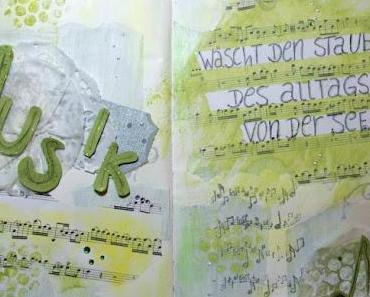 MUSIK
WASCHT DEN STAUB
DES ALLTAGS
VON DER SEE